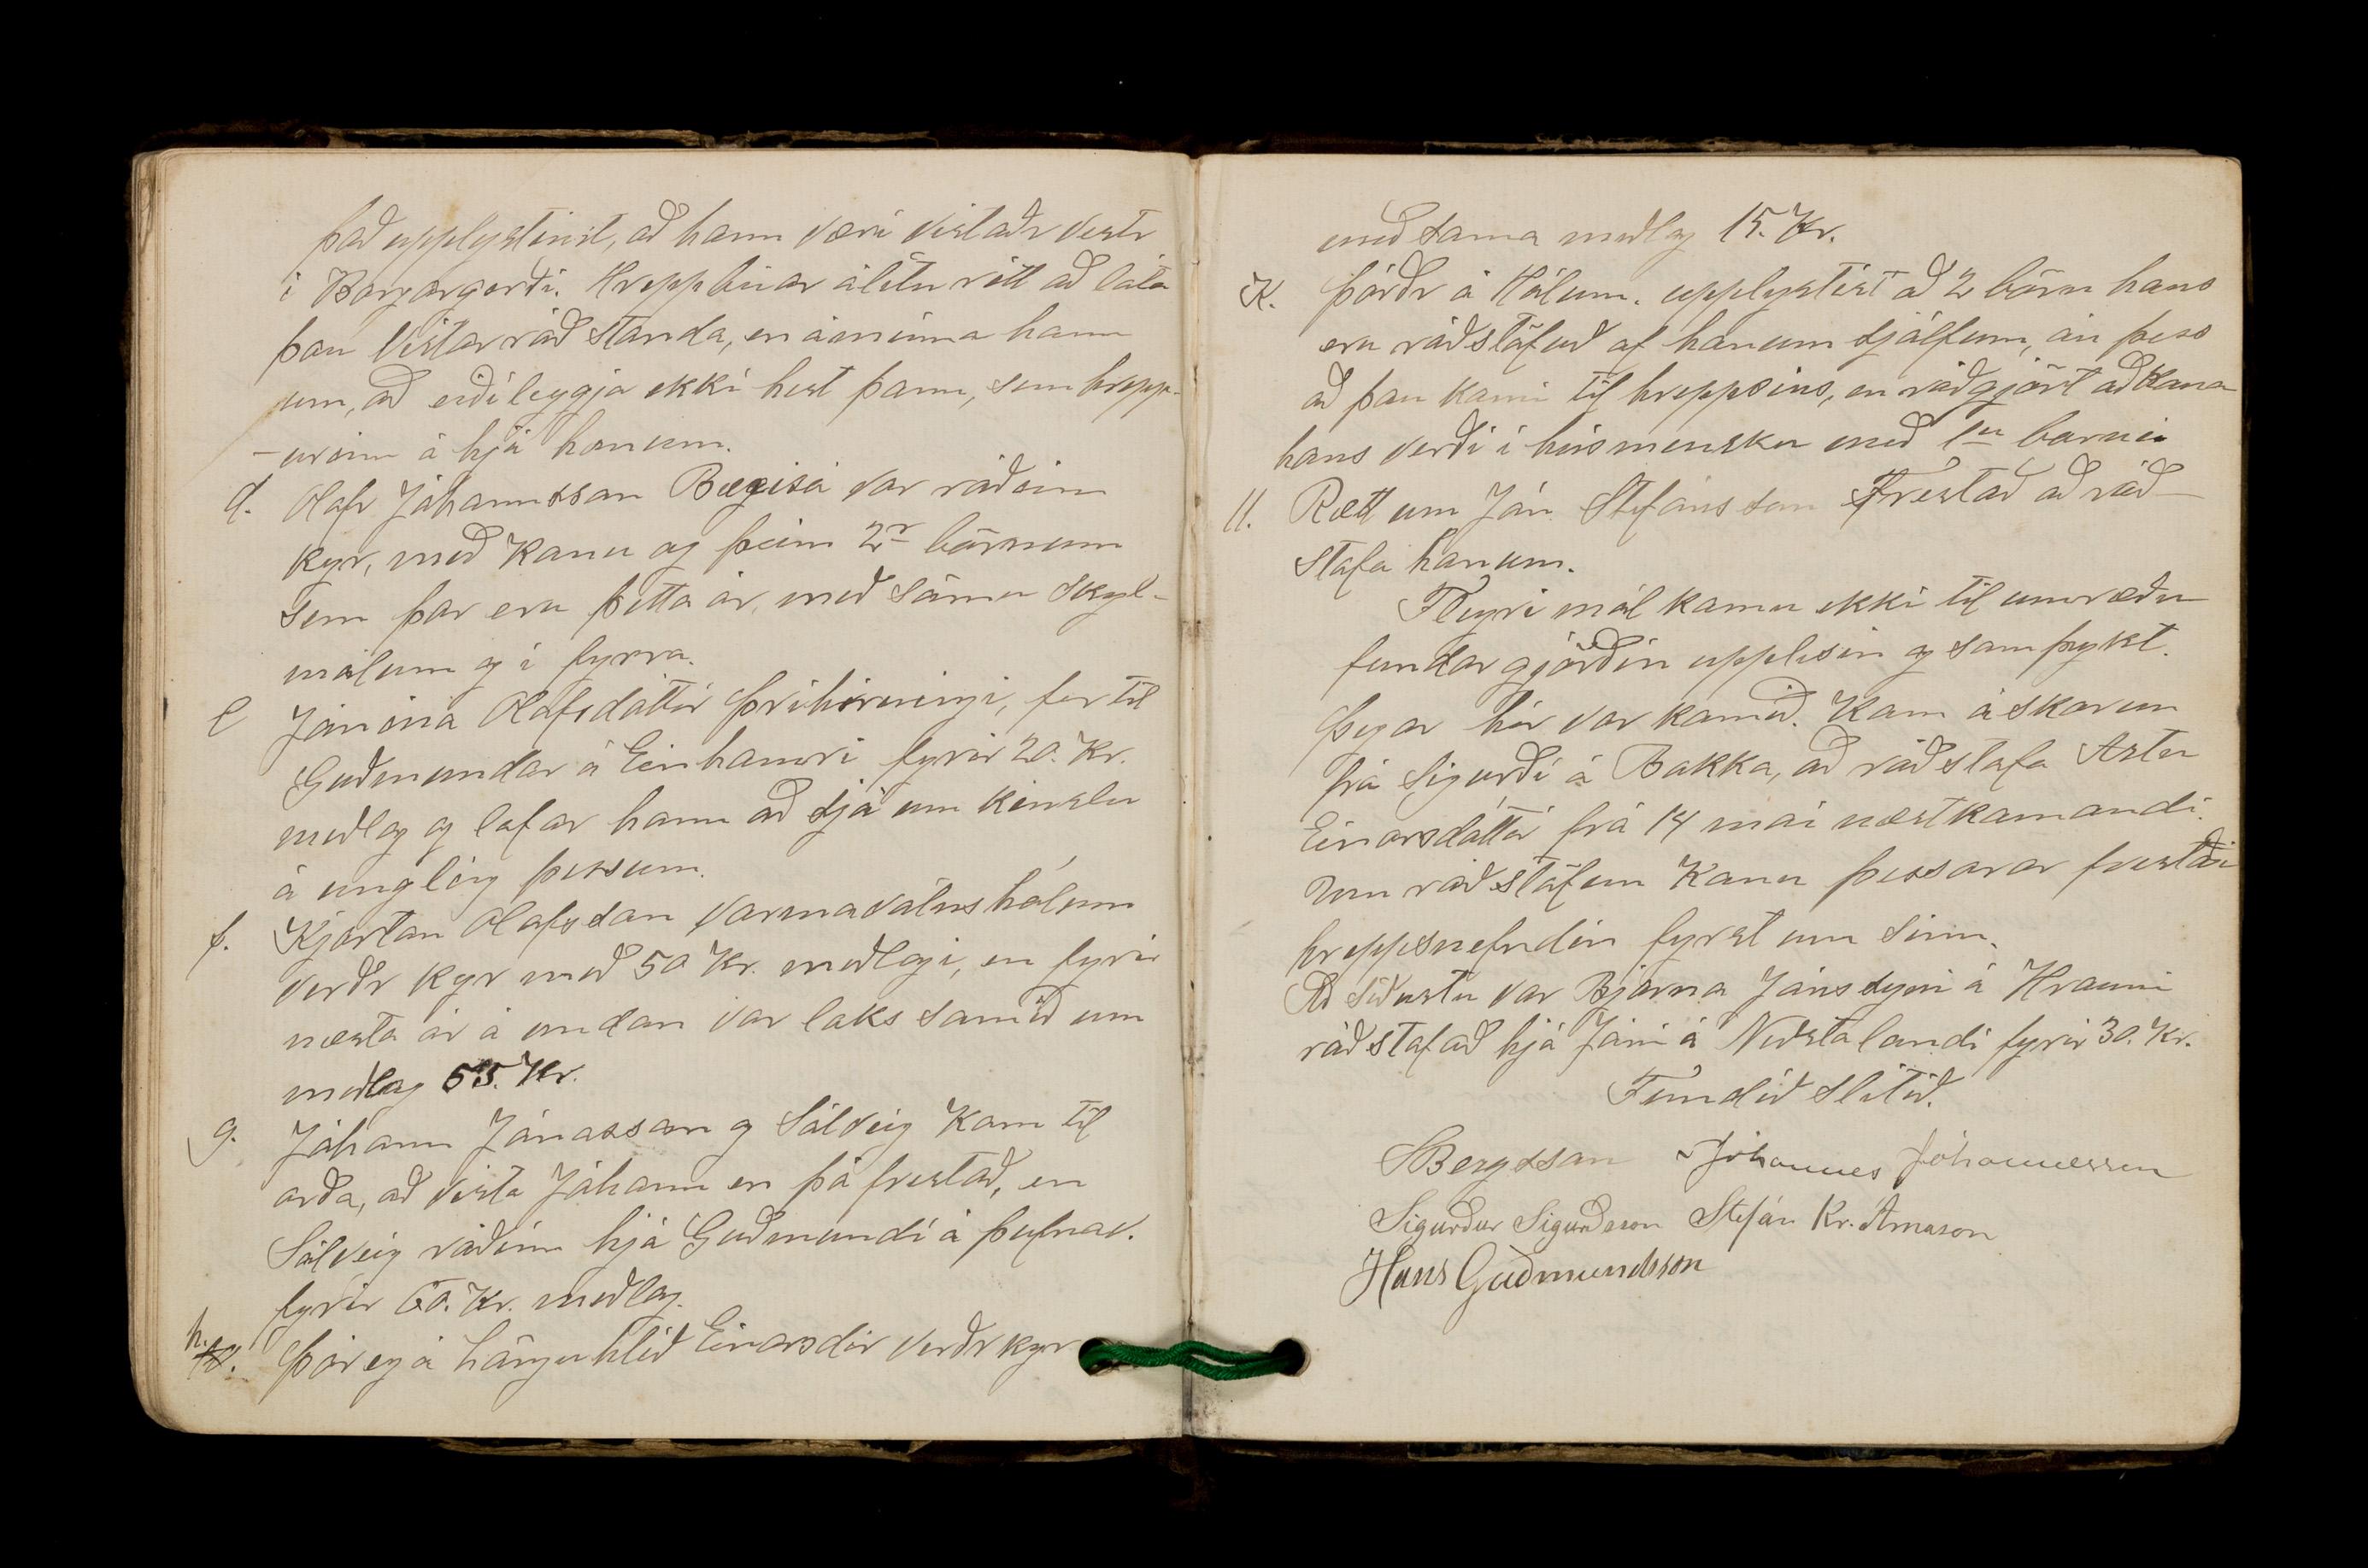 það upplystist, að hann væri vistaðr vestr
í Borgargerði. Hreppbúar álitu rétt að láta
þau vistarráð standa, en áminna hann
um, að eiðileggja ekki hest þann, sem hrepp-
-urinn á hjá honum.
d. Olafr Jóhannsson Bægisá var ráðinn
kyr, með konu og þeim 2r börnum
sem þar eru þetta ár, með sömu skyl-
málum og í fyrra.
e Jónína Olafsdóttir Þríhirningi, fer til
Guðmundar á Einhamri fyrir 20. Kr.
meðlag og lofar hann að sjá um kenslu
á ungling þessum.
f. Kjartan Olafsson Varmavatnshólum
verðr kyr með 50 Kr. meðlagi, en fyrir
næsta ár á undan var loks samið um
meðlag 65. Kr.
g. Jóhann Jónasson og Sólveig Kom til
orða, að vista Jóhann en þá frestað, en
Sólveig ráðinn hjá Guðmundi á Þúfnav.
fyrir 60. Kr. meðlag.
h. Þórey á Hönguhlíð Einarsdóir verðr kyr
með sama meðlag 15. Kr.
K. Þórðr á Hólum. upplystist að 2 börn hans
eru ráðstöfuð af honum sjálfum, án þess
að þau komi til hreppsins, en ráðgjört að kona
hans verði í húsmensku með 1u barni
11. Rætt um Jón Stefánsson Frestað að ráð-
stafa honum.
Fleyri mál komu ekki til umræðu
fundargjörðin upplesin og samþykt.
Þegar hér var komið. Kom áskorun
frá Sigurði á Bakka, að ráðstafa Astu
Einarsdóttir frá 14 mai næstkomandi.
Um ráðstöfun Konu þessarar frestaði
hreppsnefndin fyrst um sinn.
Að síðustu var Bjarna Jónssyni á Hrauni
ráðstafað hjá Jóni á Neðstalandi fyrir 30. Kr.
Fundið slitið.
SBergsson Jóhannes Jóhannesson
Sigurður Sigurðsson Stefán Kr. Árnason
Hans Guðmundsson